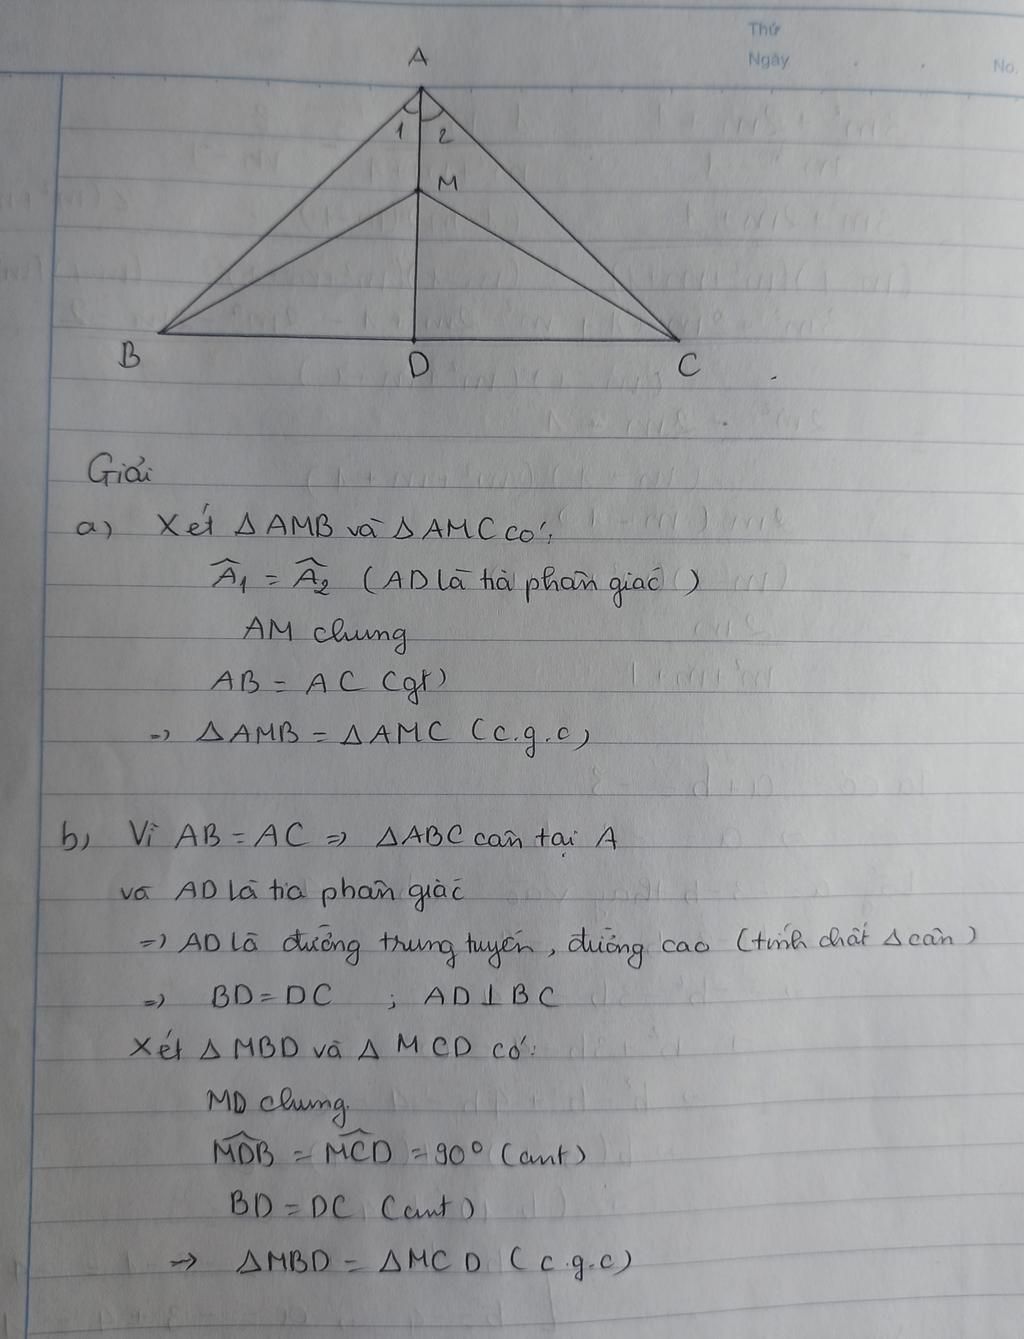 Thứ
Ngày
No.
A
1 2
M
B
D
C
Giải
a) Xét ∆ AMB và ∆ AMC có:
Â₁ = Â₂ (AD là tia phân giác)
AM chung
AB = AC (gt)
=> ∆AMB = ∆AMC (c.g.c)
b) Vì AB = AC => ∆ABC cân tại A
và AD là tia phân giác
=> AD là đường trung tuyến, đường cao (tính chất ∆ cân)
=> BD = DC ; AD ⊥ BC
Xét ∆ MBD và ∆ MCD có:
MD chung
\widehat{MDB} = \widehat{MCD} = 90° (cmt)
BD = DC (cmt)
→ ∆MBD = ∆MCD (c.g.c)